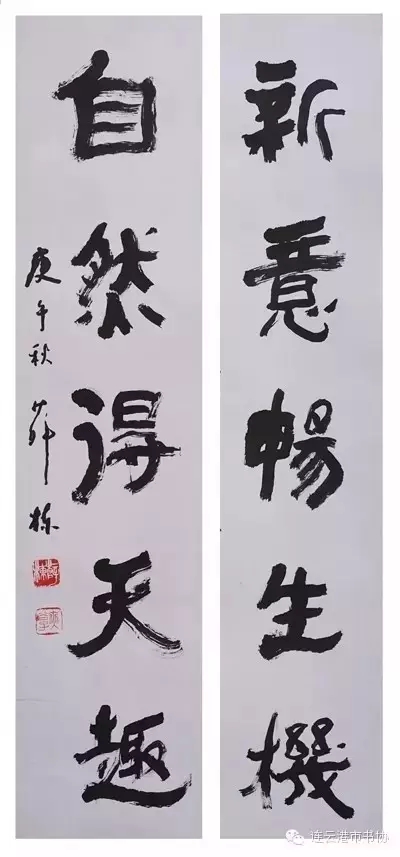 新意暢生機
自然得天趣
庚午秋 薛栋
连云港市书协